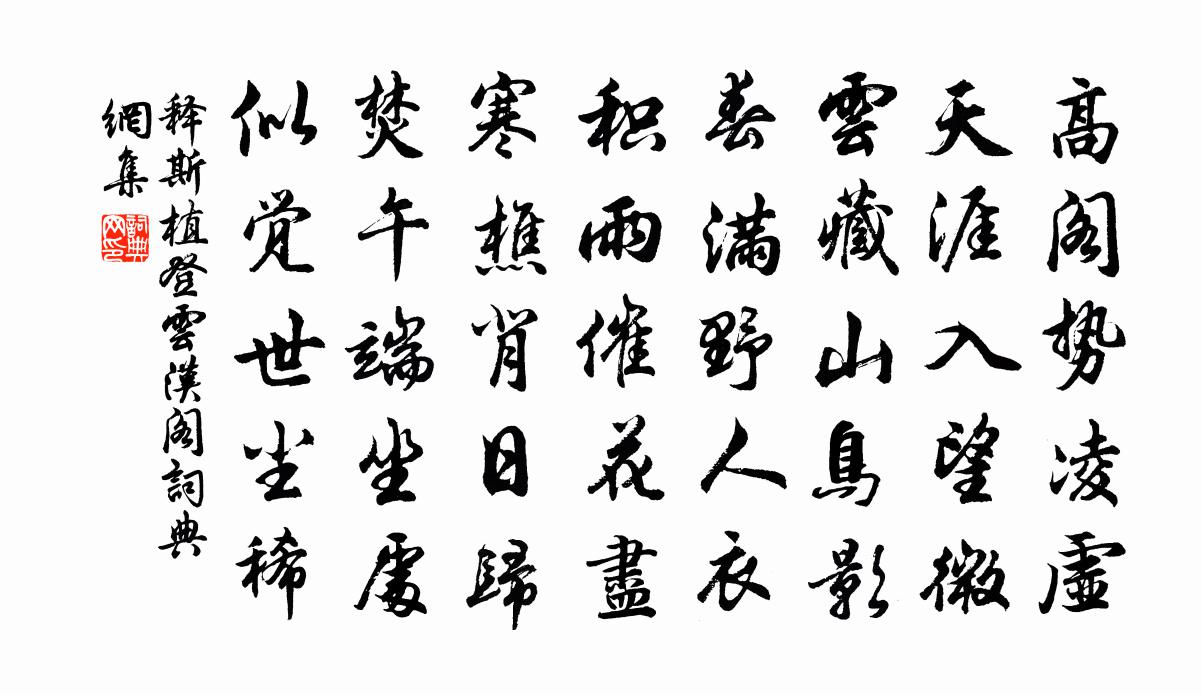 高阁势凌虚
天涯入望微
雲藏山鳥影
春满野人衣
积雨催花盡
寒樵背日歸
焚午端坐處
似觉世尘稀
释斯植登雲漢阁詞典
網集
詞典
网印